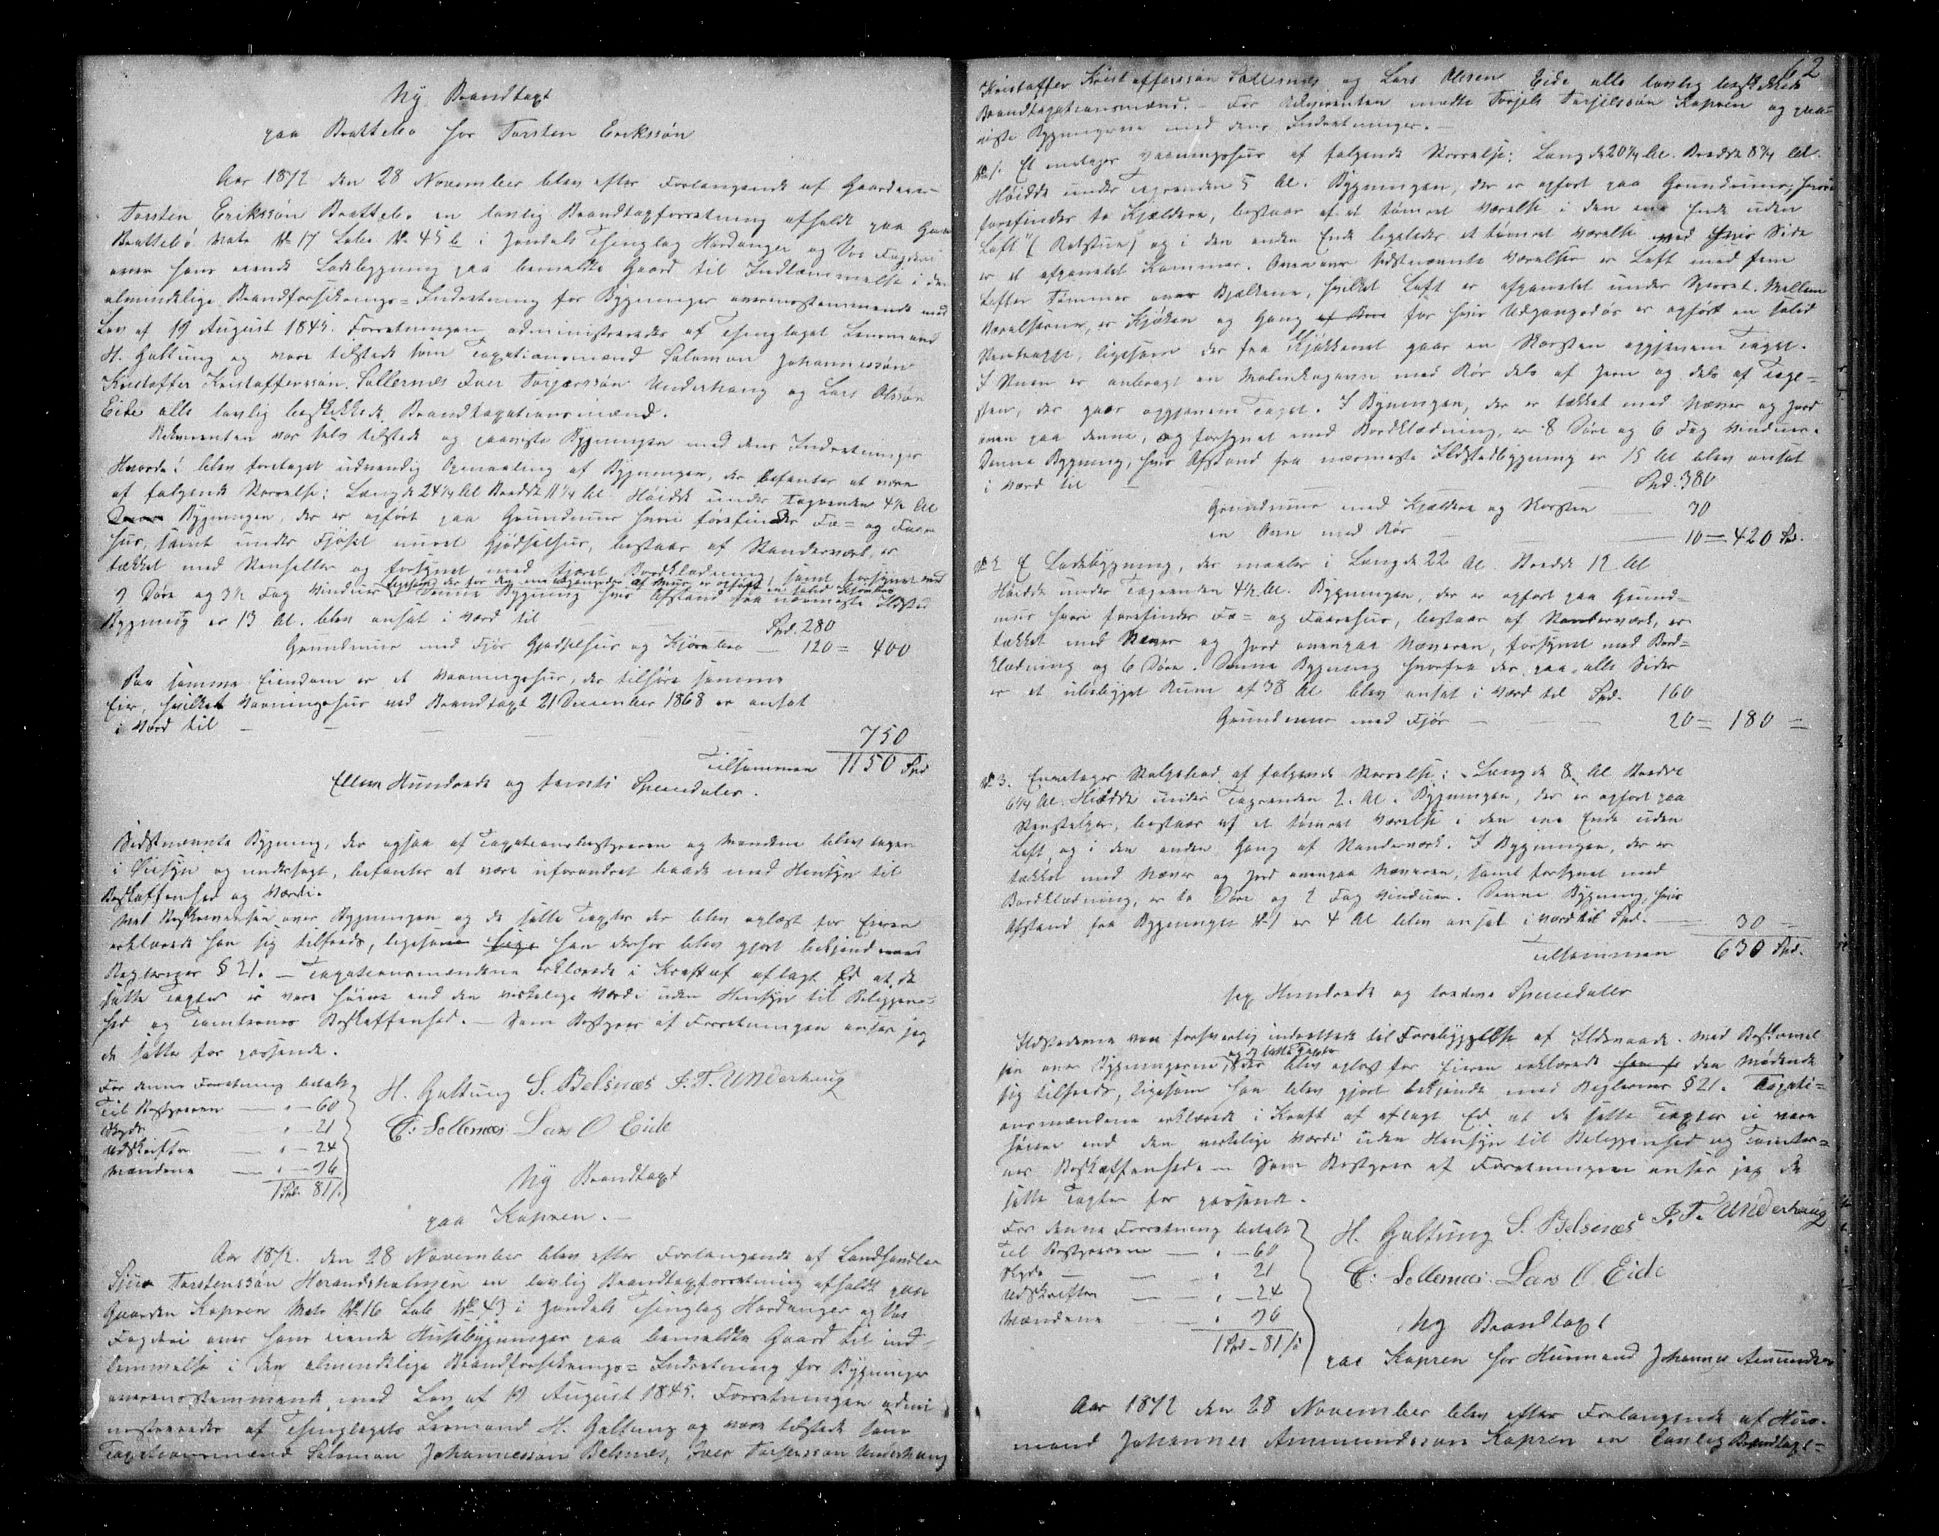 Ny Brandtaxt
paa Brattebø hos Torsten Erikssøn
Aar 1872 den 28 November blev efter Forlangende af Gaardeier
Torsten Erikssøn Brattebø en lovlig Brandtaxtforretning afholdt paa Gaarden
Brattebø Matr No 17 Løbe No 45 b i Jondals Thinglag Hardanger og Vos Fogderi
over hans eiende Ladebygning paa bemeldte Gaard til Indlemmelse i den
almindelige Brandforsikrings=Indretning for Bygninger overensstemmende med
Lov af 19 August 1845. Forretningen administreredes af Thinglagets Lensmand
H. Galtung og vare tilstede som Taxationsmænd Salomon Johannessøn
Kristoffer Kristofferssøn Sollesnes Iver Torjerssøn Underhaug og Lars Olssøn
Eide alle lovlig beskikkede Brandtaxationsmænd.
Rekvirenten var selv tilstede og paaviste Bygningen med dens Indretninger
Hvorda! blev foretaget udvendig Opmaaling af Bygningen, der befantes at være
af følgende Størrelse: Længde 24¼ Al Bredde 11¼ Al. Høide under Tagrenden 4½ Al
Bygningen, der er opført paa Grundmur hvori forefindes Fæ= og Faare
hus, samt under Fjøset muret Gjødselhus, bestaar af Standerværk, er
tækket med Stenheller og forsynet med tjæret Bordklædning
ligesom der for den ene Langside af Mur er opført en solid Kjørebro, samt forsynet med
9 Døre og 3½ Fag Vinduer Denne Bygning hvis Afstand fra nærmeste Ildsted
Bygning er 13 Al. blev ansat i Værd til Spd. 280
Grundmur med Fjøs Gjødselhus og Kjørebro — 120 = 400
Paa samme Eiendom er et Vaaningshus, der tilhøre samme
Eier, hvilket Vaaningshus ved Brandtaxt 21 December 1868 er ansat
i Værd til — — — 750
Tilsammen 1150 Spd
Elleve Hundrede og femti Speciedaler.
Sidstnævnte Bygning, der ogsaa af Taxationsbestyreren og Mændene blev tagen
i Øiesyn og undersøgt, befantes at være uforandret baade med Hensyn til
Beskaffenhed og Værdi.
Med Beskrivelsen over Bygningen og de satte Taxter der blev oplæst for Eieren
erklærede han sig tilfreds, ligesom han derhos blev gjort bekjendt med
Reglernes § 21. — Taxationsmændene erklærede i Kraft af aflagt Ed at de
satte Taxter ei vare høiere end den virkelige Værdi uden Hensyn til Beliggen=
hed og Tomternes Beskaffenhed. — Som Bestyrer af Forretningen anser jeg
de satte for passende.
For denne Forretning betalt
Til Bestyreren — " — 60
Skyds — " — 21
Udskriften — " — 24
Mændene — " — 96
1 Spd. 81 /
H. Galtung S. Belsnæs I. T. Underhaug
C: Sollesnæs Lars O Eide
Ny Brandtaxt
paa Kapren. —
Aar 1872. den 28 November blev efter Forlangende af Landhandler
Sjur Torstenssøn Herandsholmen en lovlig Brandtaxtforretning afholdt paa
Gaarden Kapren Matr No 16 Løb No 43 i Jondals Thinglag Hardanger og Vos
Fogderi over hans eiende Husebygninger paa bemeldte Gaard til ind=
lemmelse i den almindelige Brandforsikrings=Indretning for Bygninger
overensstemmende med Lov af 19 August 1845. Forretningen admi
nistreredes af Thinglagets Lensmand H. Galtung og vare tilstede som
Taxationsmænd Salomon Johannessøn Belsnes, Iver Torjerssøn Underhaug
62
Kristoffer Kristofferssøn Sollesnes og Lars Olssøn Eide alle lovlig beskikkede
Brandtaxationsmænd. — For Rekvirenten mødte Torjels Torjelssøn Kapren og paa=
viste Bygningerne med dens Indretninger. —
No 1. Et etages Vaaningshus af følgende Størrelse: Længde 20¼ Al. Bredde 8¼ Al.
Høide under Tagrenden 5 Al. Bygningen, der er opført paa Grundmur, hvori
forefindes to Kjældere, bestaar af et tømret Værelse i den ene Ende uden
Loft (Røkstue) og i den anden Ende ligeledes et tømret Værelse ved hvis Side
er et afpanelet Kammer. Over sidstnævnte Værelser er Loft med fem
Løfter Tømmer over Bjelkene, hvilket Loft er afpanelet under Sperret. Mellem
Værelserne, er Kjøken og Gang for hvis Udgangsdør er opført en solid
Stentrappe, ligesom der fra Kjøkkenet gaar en Skorsten opgjennem Taget.
I Stuen er anbragt en Malmkagovn med Rør dels af Jern og dels af Tegl=
sten, der gaar opgjennem Taget. I Bygningen, der er tækket med Næver og Jord
oven paa denne, og forsynet med Bordklædning, er 8 Døre og 6 Fag Vinduer.
Denne Bygning, hvis Afstand fra nærmeste Ildstedbygning er 15 Al blev ansat
i Værd til — — — Spd. 380
Grundmur med Kjældere og Skorsten — 30
en Ovn med Rør — 10 — 420 Spd.
No 2 E Ladebygning, der maaler i Længde 22 Al. Bredde 12 Al
Høide under Tagrenden 4½ Al. Bygningen, der er opført paa Grund=
mur hvori forefindes Fæ= og Faarehus, bestaar af Standerværk, er
tækket med Næver og Jord ovenpaa Næveren, forsynet med Bord=
klædning og 6 Døre. Denne Bygning hvorfra der paa alle Sider
er et ubebygget Rum af 38 Al blev ansat i Værd til Spd. 160
Grundmur med Fjøs — — 20 = 180 =
No 3. Enetages Stolpebod af følgende Størrelse: Længde 8 Al Bredde
6¼ Al. Høide under Tagrenden 2. Al. Bygningen, der er opført paa
Stenstolper, bestaar af et tømret Værelse i den ene Ende uden
Loft, og i den anden Gang af Standerværk. I Bygningen, der er
tækket med Næver og Jord ovenpaa Næveren, samt forsynet med
Bordklædning, er to Døre og 2 Fag Vinduer. Denne Bygning, hvis
Afstand fra Bygningen No 1 er 4 Al blev ansat i Værd til Spd. — 30 —
Tilsammen 630 Spd.
sex Hundrede og tredive Speciedaler
Ildstederne vare forsvarlig indrettede til Forebyggelse af Ildsvaade. Med Beskrivel
sen over Bygningerne og de satte Taxter, der blev oplæst for Eieren erklærede den Mødende
sig tilfreds, ligesom han blev gjort bekjendt med Reglernes § 21. Taxati=
onsmændene erklærede i Kraft af aflagt Ed at de satte Taxter ei vare
høiere end den virkelige Værdi uden Hensyn til Beliggenhed og Tomter=
nes Beskaffenhed. — Som Bestyrer af Forretningen anser jeg de
satte Taxter for passende.
For denne Forretning betalt
Til Bestyreren — " — 60
Skyds — " 21
Udskriften — " — 24
Mændene — " 96
1 Spd — 81 /
H. Galtung S. Belsnæs I. T. Underhaug
C: Sollesnæs. Lars O. Eide
Ny Brandtaxt
paa Kapren hos Husmand Johannes Amundsen
Aar 1872 den 28 November blev efter Forlangende af Hus=
mand Johannes Ammundssøn Kapren en lovlig Brandtaxt=